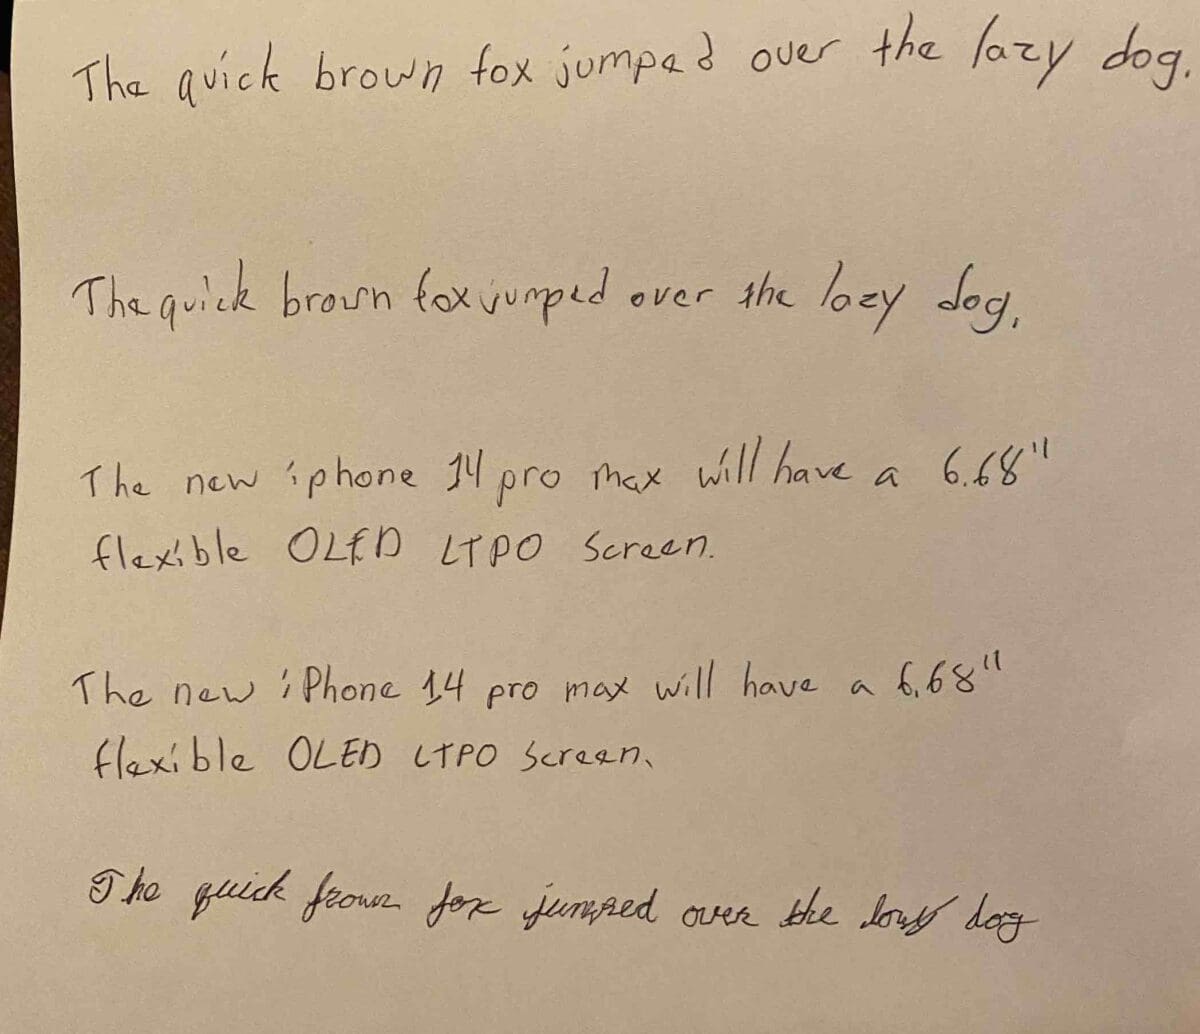 The quick brown fox jumped over the lazy dog.
The quick brown fox jumped over the lazy dog.
The new iphone 14 pro max will have a 6.68"
flexible OLED LTPO Screen.
The new iPhone 14 pro max will have a 6.68"
flexible OLED LTPO Screen.
The quick frown fox jumped over the dog